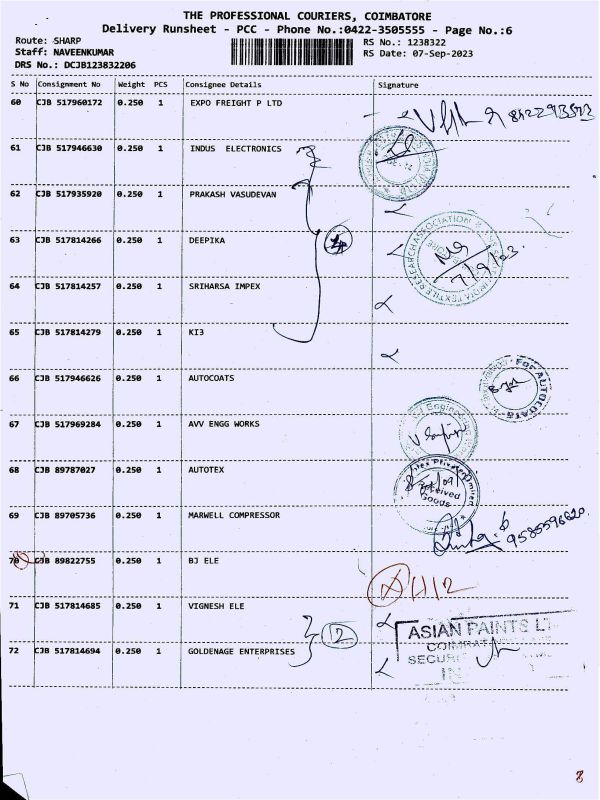 THE PROFESSIONAL COURIERS, COIMBATORE
Delivery Runsheet - PCC - Phone No.:0422-3505555 - Page No.:6
Route: SHARP
RS No.: 1238322
Staff: NAVEENKUMAR
RS Date: 07-Sep-2023
DRS No.: DCJB123832206
S No Consignment No Weight PCS Consignee Details Signature
60 CJB 517960172 0.250 1 EXPO FREIGHT P LTD
61 CJB 517946630 0.250 1 INDUS ELECTRONICS
62 CJB 517935920 0.250 1 PRAKASH VASUDEVAN
63 CJB 517814266 0.250 1 DEEPIKA
7/9/23
64 CJB 517814257 0.250 1 SRIHARSA IMPEX
65 CJB 517814279 0.250 1 KI3
66 CJB 517946626 0.250 1 AUTOCOATS
FOR AUTOCOATS
67 CJB 517969284 0.250 1 AVV ENGG WORKS
Engineering
68 CJB 89787027 0.250 1 AUTOTEX
Received
Goods
69 CJB 89705736 0.250 1 MARWELL COMPRESSOR
9585596620
70 CJB 89822755 0.250 1 BJ ELE
71 CJB 517814685 0.250 1 VIGNESH ELE
12
ASIAN PAINTS
72 CJB 517814694 0.250 1 GOLDENAGE ENTERPRISES
IN
8